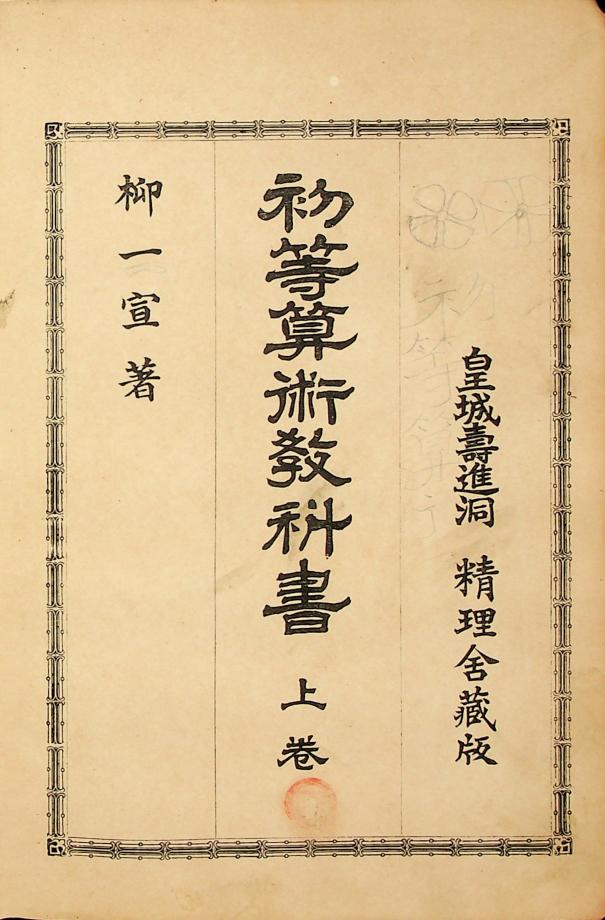 皇城壽進洞 精理舍藏版
初等算術教科書 上卷
柳一宣著
初等算